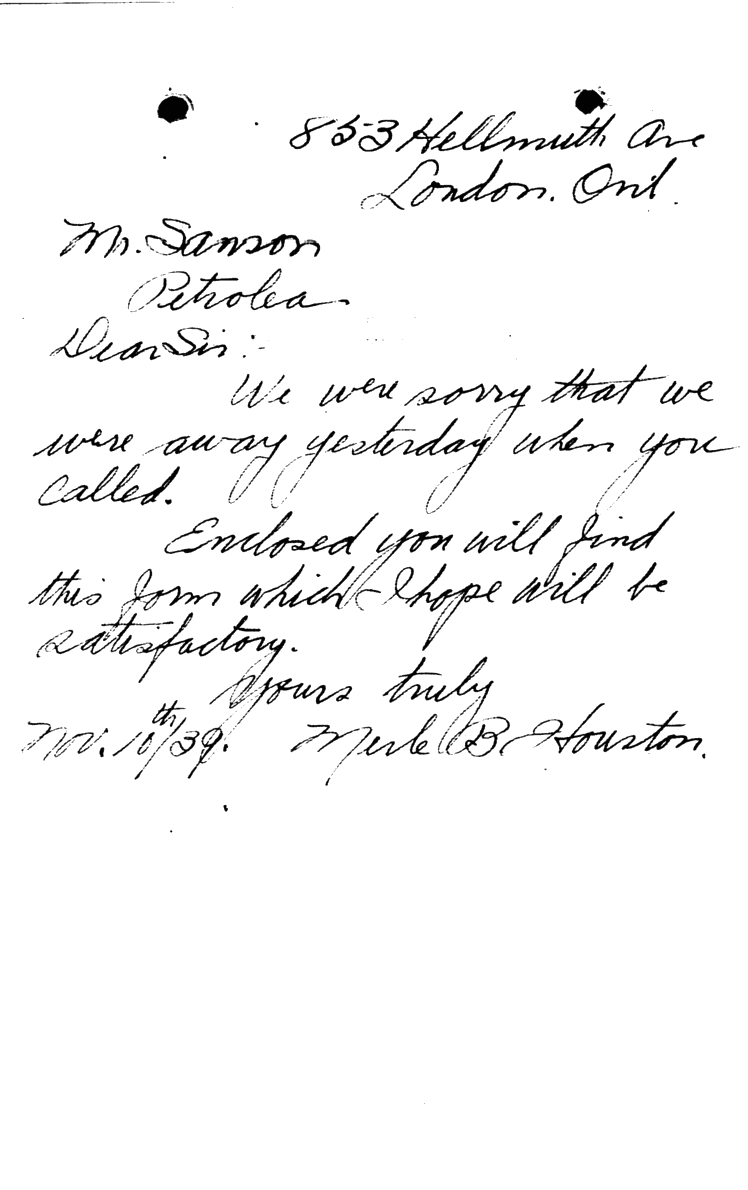 853 Hellmuth Ave
London. Ont.
Mr. Sanson
Petrolea
Dear Sir:-
We were sorry that we
were away yesterday when you
called.
Enclosed you will find
this form which I hope will be
satisfactory.
Yours truly
Nov. 10th/39. Merle B. Houston.